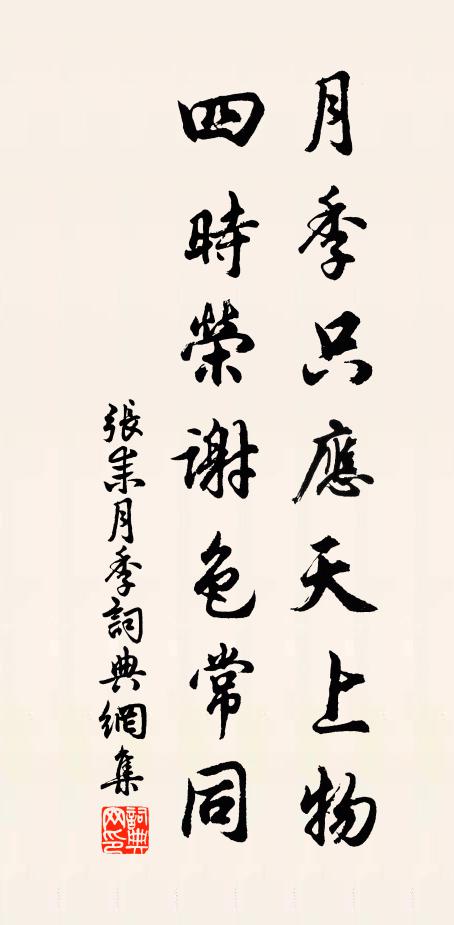 月季只應天上物
四時榮謝色常同
張耒月季詞典網集
詞典網印